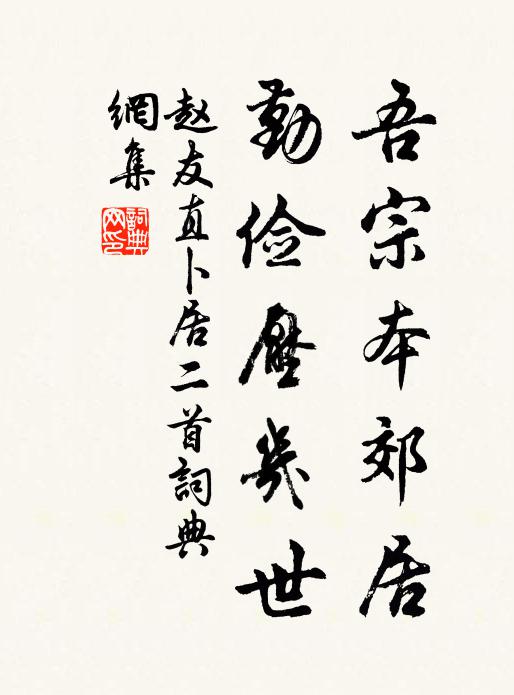 吾宗本郊居
勤俭歷幾世
赵友直卜居二首詞典
網集
詞典網印